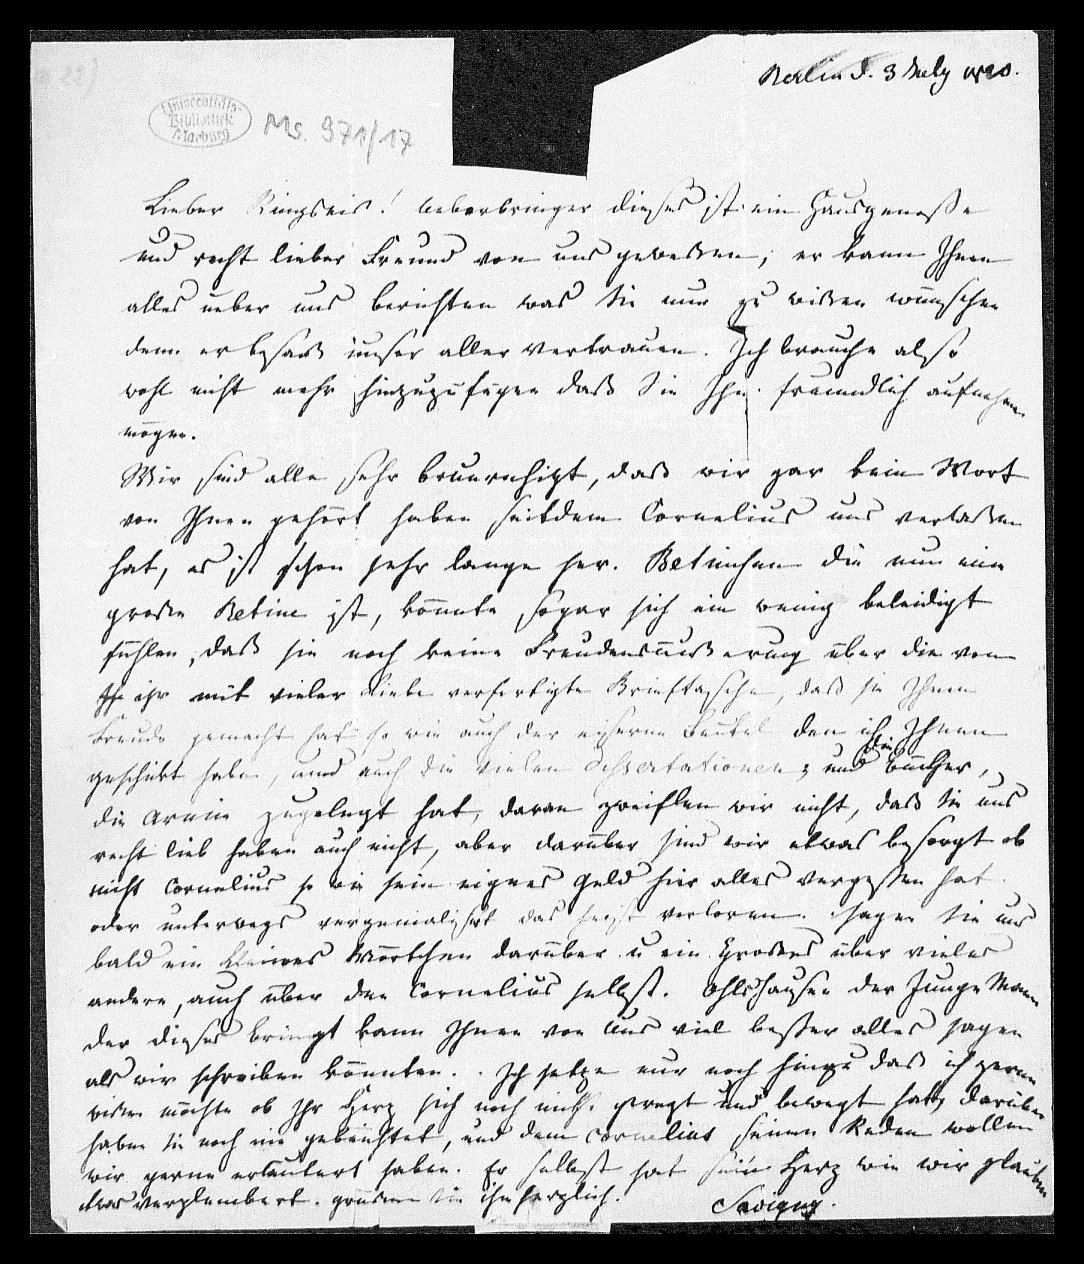 22)
Berlin d. 3 July 1820.
Universitäts-
Bibliothek
Marburg
Ms. 971/17
Lieber Ringseis! Ueberbringer dieses ist ein Hausgenosse
und recht lieber Freund von uns gewesen, er kann Ihnen
alles ueber uns berichten was Sie nur zu wissen wünschen
denn er besaß unser aller Vertrauen. Ich brauche also
wohl nicht mehr hinzuzufügen daß Sie Ihn freundlich aufnehmen
mögen.
Wir sind alle sehr beunruhigt, daß wir gar kein Wort
von Ihnen gehört haben seitdem Cornelius uns verlassen
hat, es ist schon sehr lange her. Betinchen die nun eine
große Betine ist, könnte sogar sich ein wenig beleidigt
fühlen, daß sie noch keine Freudensäußerung über die von
ihr mit vieler Liebe verfertigte Brieftasche, daß sie Ihnen
Freude gemacht hat so wie auch der eiserne Beutel den ich Ihnen
geschikt habe, und auch die vielen Dissertationen und die Bücher,
die Arnim zugelegt hat, daran zweiflen wir nicht, daß Sie uns
recht lieb haben auch nicht, aber darüber sind wir etwas besorgt ob
nicht Cornelius so wie sein eignes Geld hier alles vergessen hat
oder unterwegs vergenialisirt das heist verloren. Sagen Sie uns
bald ein kleines Wörtchen darüber u ein Großes über vieles
andere, auch über den Cornelius selbst. Ohlshausen der Junge Mann
der dieses bringt kann Ihnen von uns viel besser alles sagen
als wir schreiben könnten. Ich setze nur noch hinzu daß ich gerne
wissen möchte ob Ihr Herz sich noch nicht geregt und bewegt hat, darüber
haben Sie noch nie gebeichtet, und dem Cornelius seinen Reden wollen
wir gerne erläutert haben. Er selbst hat sein Herz wie wir glauben
etwas verplembert. grüssen Sie ihn herzlich.
Savigny.